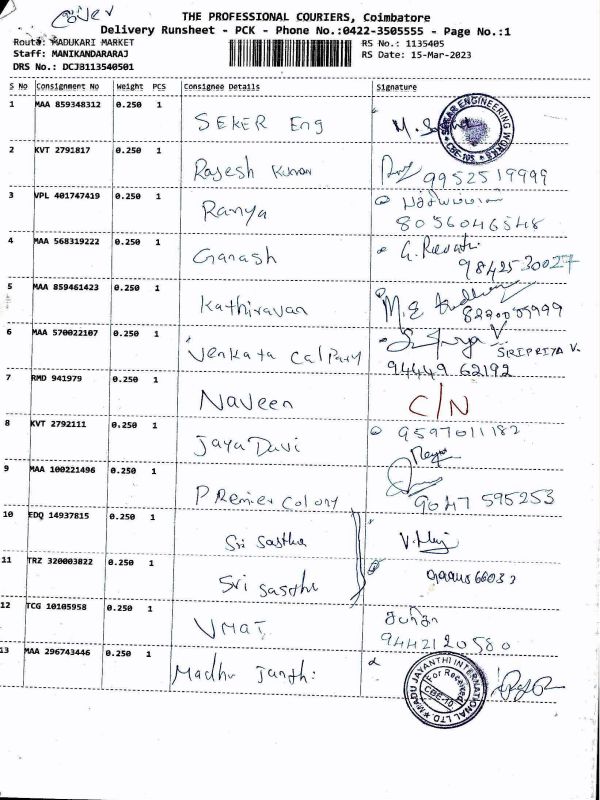 THE PROFESSIONAL COURIERS, Coimbatore
Delivery Runsheet - PCK - Phone No.:0422-3505555 - Page No.:1
Route: MADUKARI MARKET
Staff: MANIKANDARARAJ
DRS No.: DCJB113540501
RS No.: 1135405
RS Date: 15-Mar-2023
S No Consignment No Weight PCS Consignee Details Signature
1 MAA 859348312 0.250 1 SEKER Eng
SEKAR ENGINEERING WORKS CBE-105
2 KVT 2791817 0.250 1 Rajesh Kumar 9952519999
3 VPL 401747419 0.250 1 Ranya
8056046548
4 MAA 568319222 0.250 1 Ganash G. Revathi
9842530027
5 MAA 859461423 0.250 1 Kathiravan M.E
6 MAA 570022107 0.250 1 Venkata CalPary SRIPRIYA V.
94449 62192
7 RMD 941979 0.250 1 Naveen C/N
8 KVT 2792111 0.250 1 Jaya Davi 9597011182
9 MAA 100221496 0.250 1 Premier Colony 9047 595253
10 EDQ 14937815 0.250 1 Sri Sastha
11 TRZ 320003822 0.250 1 Sri Sasthe
12 TCG 10105958 0.250 1 VMAT
9442120580
13 MAA 296743446 0.250 1 Madhu Janth:
MADU JAYANTHI INTERNATIONAL LTD For Received CBE-10